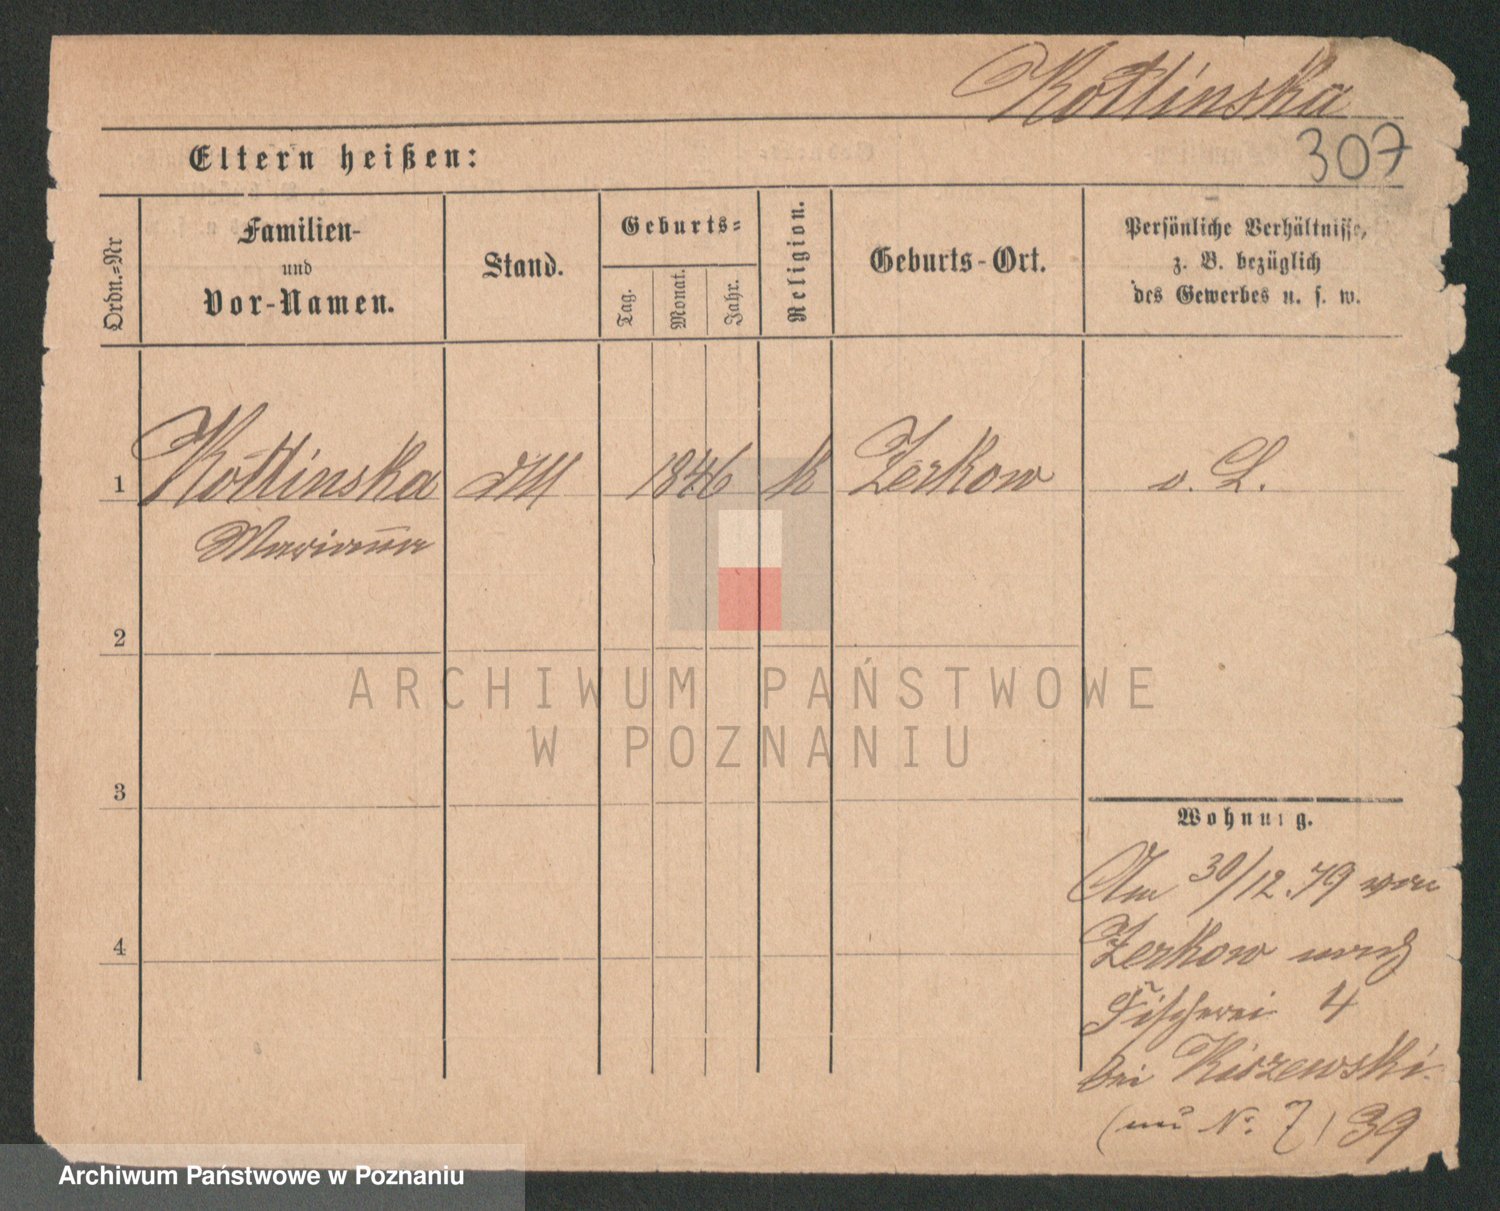 Kotlinska
307
Eltern heißen:
Ordn.=Nr
Familien-
und
Vor-Namen.
Stand.
Geburts=
Tag.
Monat.
Jahr.
Religion.
Geburts-Ort.
Persönliche Verhältnisse,
z. B. bezüglich
des Gewerbes u. s. w.
1 Kotlinska 1846 k Zerkow o. L.
Marianna
2
3
4
Wohnung.
Am 30/12.79 von
Zerkow nach
Fischerei 4
bei Kiszewski
No. 7) 39
ARCHIWUM PAŃSTWOWE
W POZNANIU
Archiwum Państwowe w Poznaniu